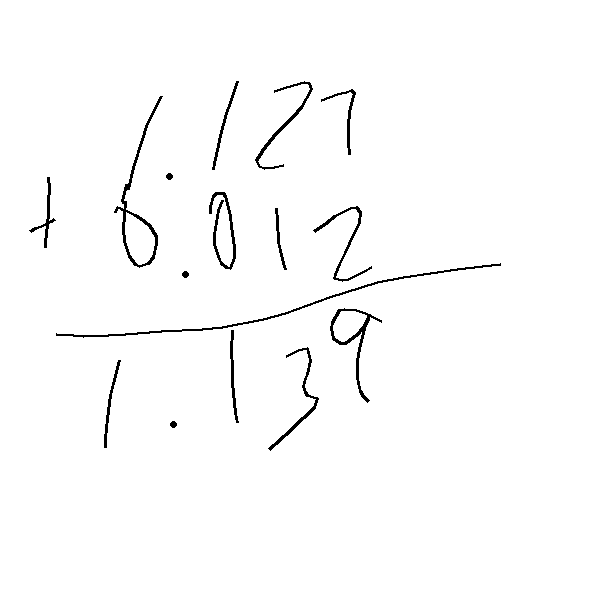 1.127
+ 0.012
1.139